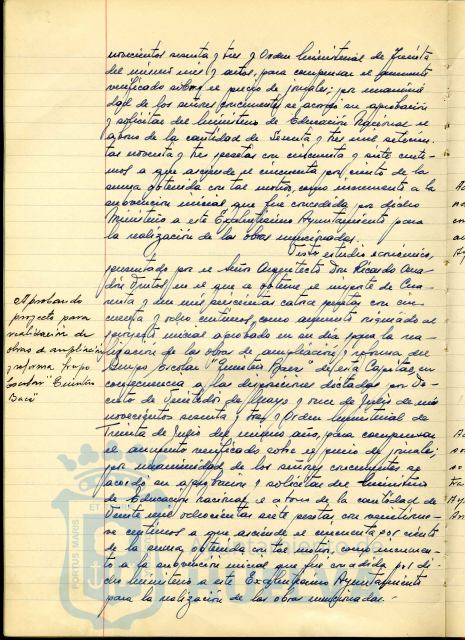 novecientos sesenta y tres y Orden Ministerial de Treinta
del mismo mes y año, para compensar el aumento
verificado sobre el precio de jornales; por unanimi-
dad de los señores concurrentes se acordó su aprobación
y solicitar del Ministerio de Educación Nacional el
abono de la cantidad de Setenta y tres mil setecien-
tas noventa y tres pesetas con cincuenta y siete cénti-
mos a que asciende el cincuenta por ciento de la
suma obtenida con tal motivo, como incremento a la
subvención inicial que fué concedida por dicho
Ministerio a este Excelentísimo Ayuntamiento para
la realización de las obras mencionadas.
Visto estudio económico,
presentado por el Señor Arquitecto Don Ricardo
en el que se obtiene el importe de Cua-
renta y un mil seiscientas catorce pesetas con cin-
cuenta y ocho céntimos, como aumento originado al
proyecto inicial aprobado en su día para la rea-
lización de las obras de ampliación y reforma del
Grupo Escolar "Quintín Baca" de esta Capital, en
consecuencia a las disposiciones dictadas por De-
creto de de Mayo y once de Julio de mil
novecientos sesenta y tres y Orden Ministerial de
Treinta de Julio del mismo año, para compensar
el aumento verificado sobre el precio de jornales;
por unanimidad de los señores concurrentes se
acordó su aprobación y solicitar del Ministerio
de Educación Nacional el abono de la cantidad de
Veinte mil ochocientas siete pesetas con veintinue-
ve céntimos a que asciende el cincuenta por ciento
de la suma obtenida con tal motivo, como incremen-
to a la subvención inicial que fué concedida por di-
cho Ministerio a este Excelentísimo Ayuntamiento
para la realización de las obras mencionadas.-
Aprobando
proyecto para
realización de
obras de ampliación
y reforma Grupo
Escolar "Quintín
Baca"
PORTUS MARIS
ET